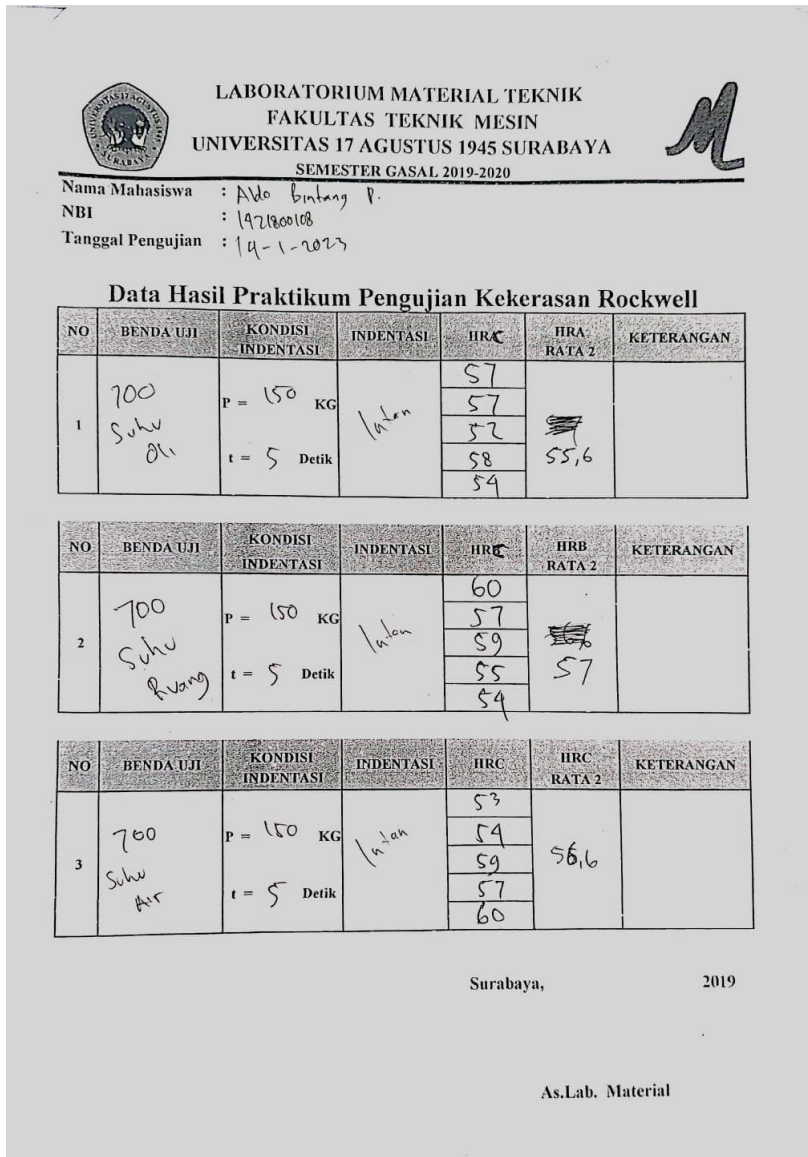 UNIVERSITAS 17 AGUSTUS 1945
SURABAYA
LABORATORIUM MATERIAL TEKNIK
FAKULTAS TEKNIK MESIN
UNIVERSITAS 17 AGUSTUS 1945 SURABAYA
SEMESTER GASAL 2019-2020
M
Nama Mahasiswa : Aldo Bintang P.
NBI : 1421800108
Tanggal Pengujian : 14-1-2023
Data Hasil Praktikum Pengujian Kekerasan Rockwell
NO BENDA UJI KONDISI INDENTASI INDENTASI HRC HRA RATA 2 KETERANGAN
1 700 Suhu Oli P = 150 KG t = 5 Detik Intan 55,6
57
57
52
58
54
NO BENDA UJI KONDISI INDENTASI INDENTASI HRC HRB RATA 2 KETERANGAN
2 700 Suhu Ruang P = 150 KG t = 5 Detik Intan 57
60
57
59
55
54
NO BENDA UJI KONDISI INDENTASI INDENTASI HRC HRC RATA 2 KETERANGAN
3 700 Suhu Air P = 150 KG t = 5 Detik Intan 56,6
53
54
59
57
60
Surabaya, 2019
As.Lab. Material